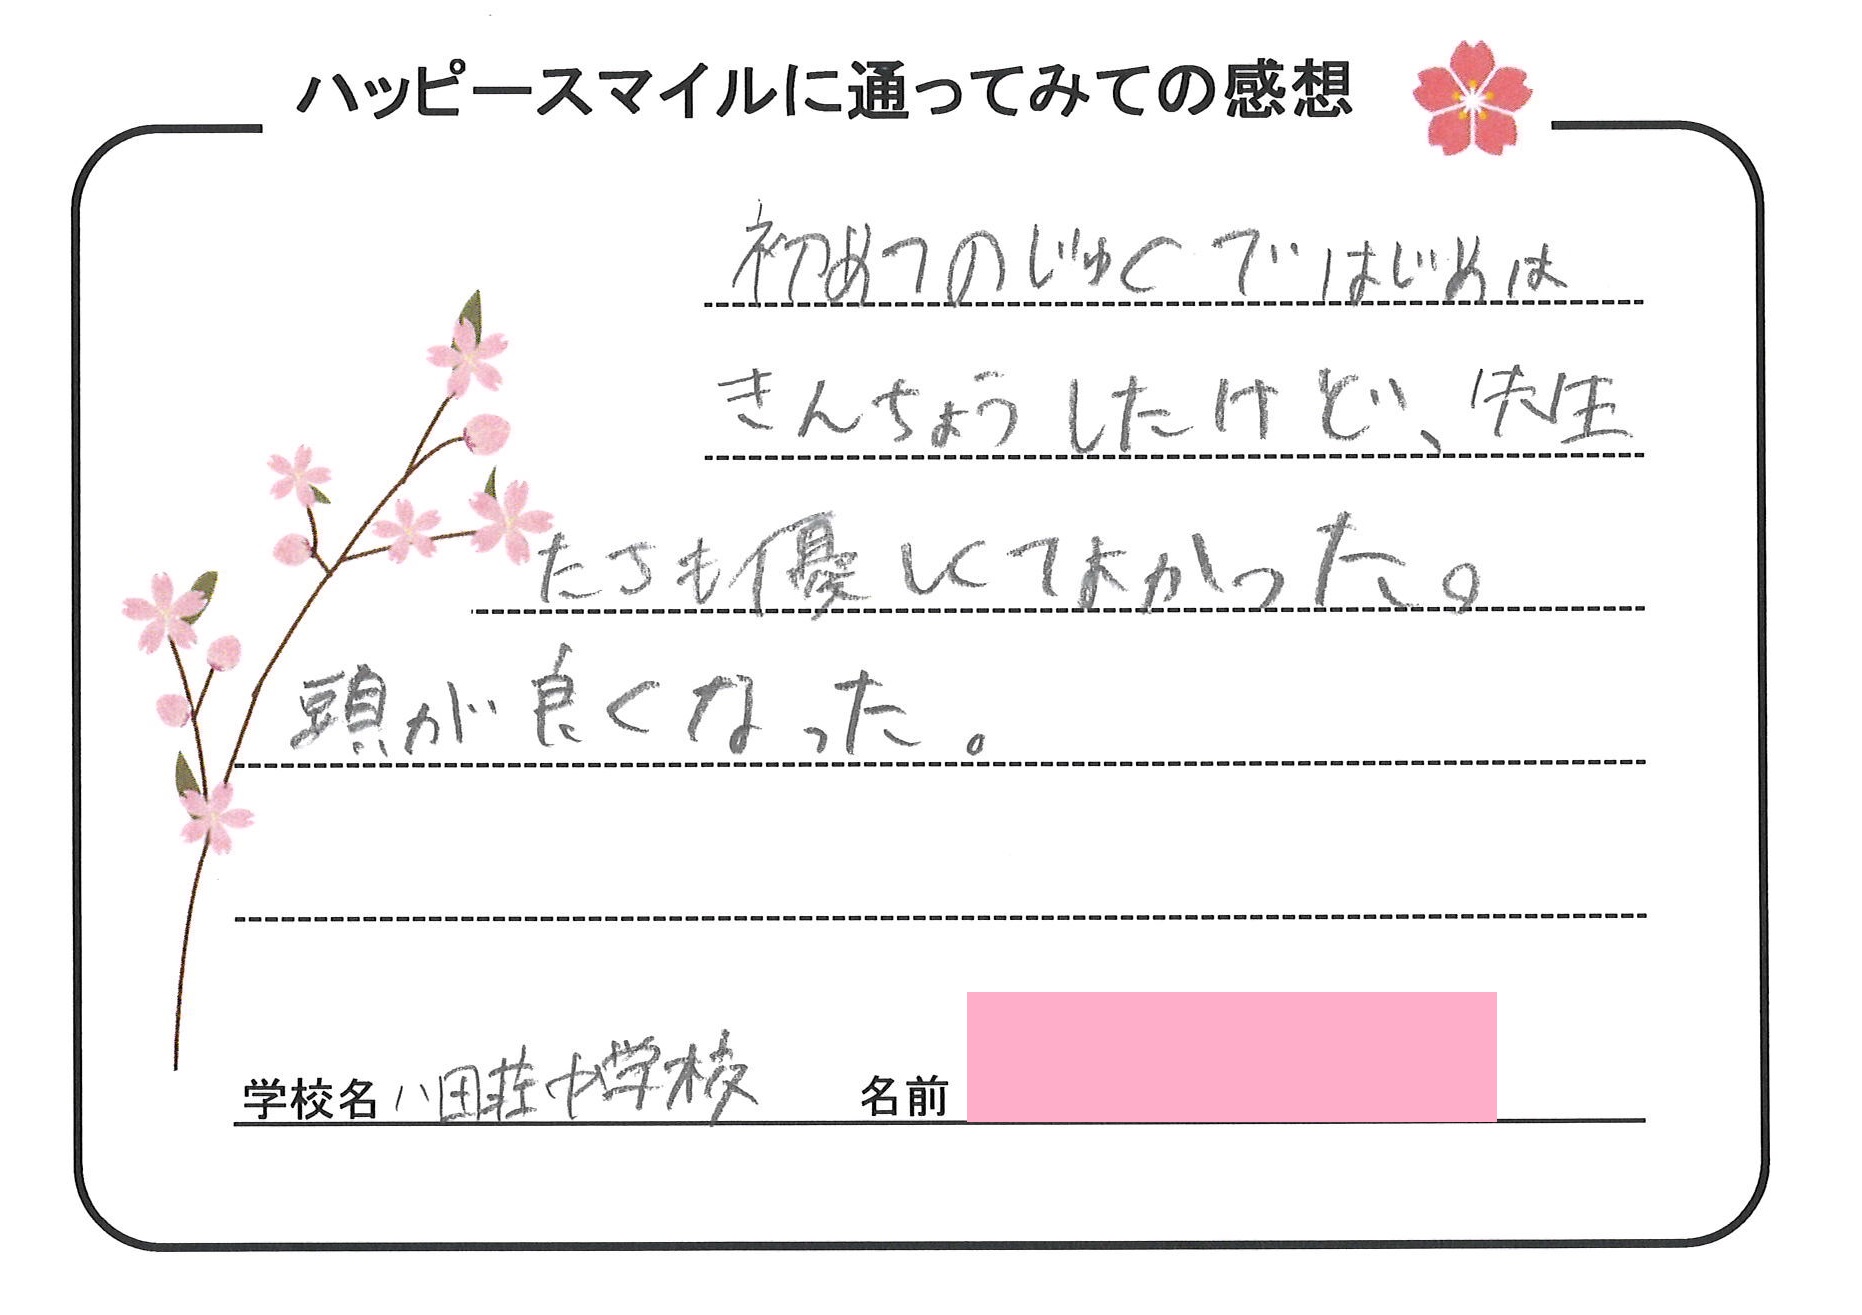 ハッピースマイルに通ってみての感想
初めてのじゅくではじめは
きんちょうしたけど、先生
たちも優しくてよかった。
頭が良くなった。
学校名 八田荘中学校 名前